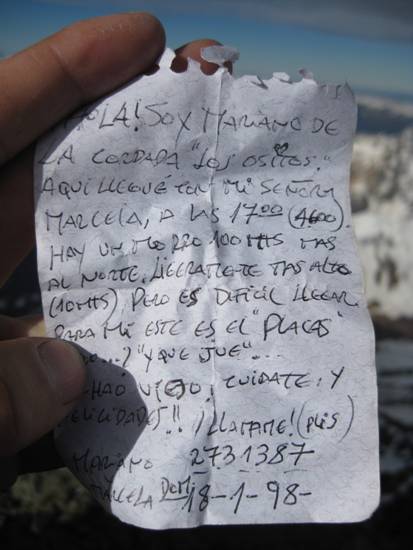 HOLA! SOY MARIANO DE
LA CORDADA "LOS OSITOS".
AQUI LLEGUÉ CON MI SEÑORA
MARCELA, A LAS 17:00 (4600).
HAY UN OTRO 100 MTS MAS
AL NORTE, LIGERAMENTE MAS ALTO
(10 MTS) PERO ES DIFICIL LLEGAR.
PARA MI ESTE ES EL "PLACAS"
"Y QUE JUE"...
CHAO VIEJO, CUIDATE, Y
FELICIDADES!! ¡LLAMAME! (PLIS)
MARIANO 2731387
MARCELA 18-1-98-